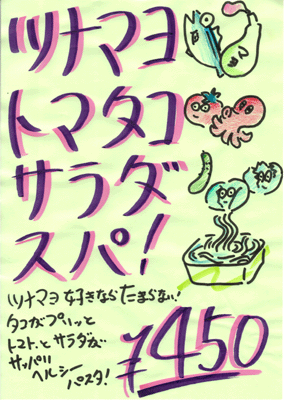 ツナマヨ
トマタコ
サラダ
スパ!
ツナマヨ好きならたまらない!
タコがプリッと
トマトとサラダが
サッパリ
ヘルシー
パスタ!
¥450